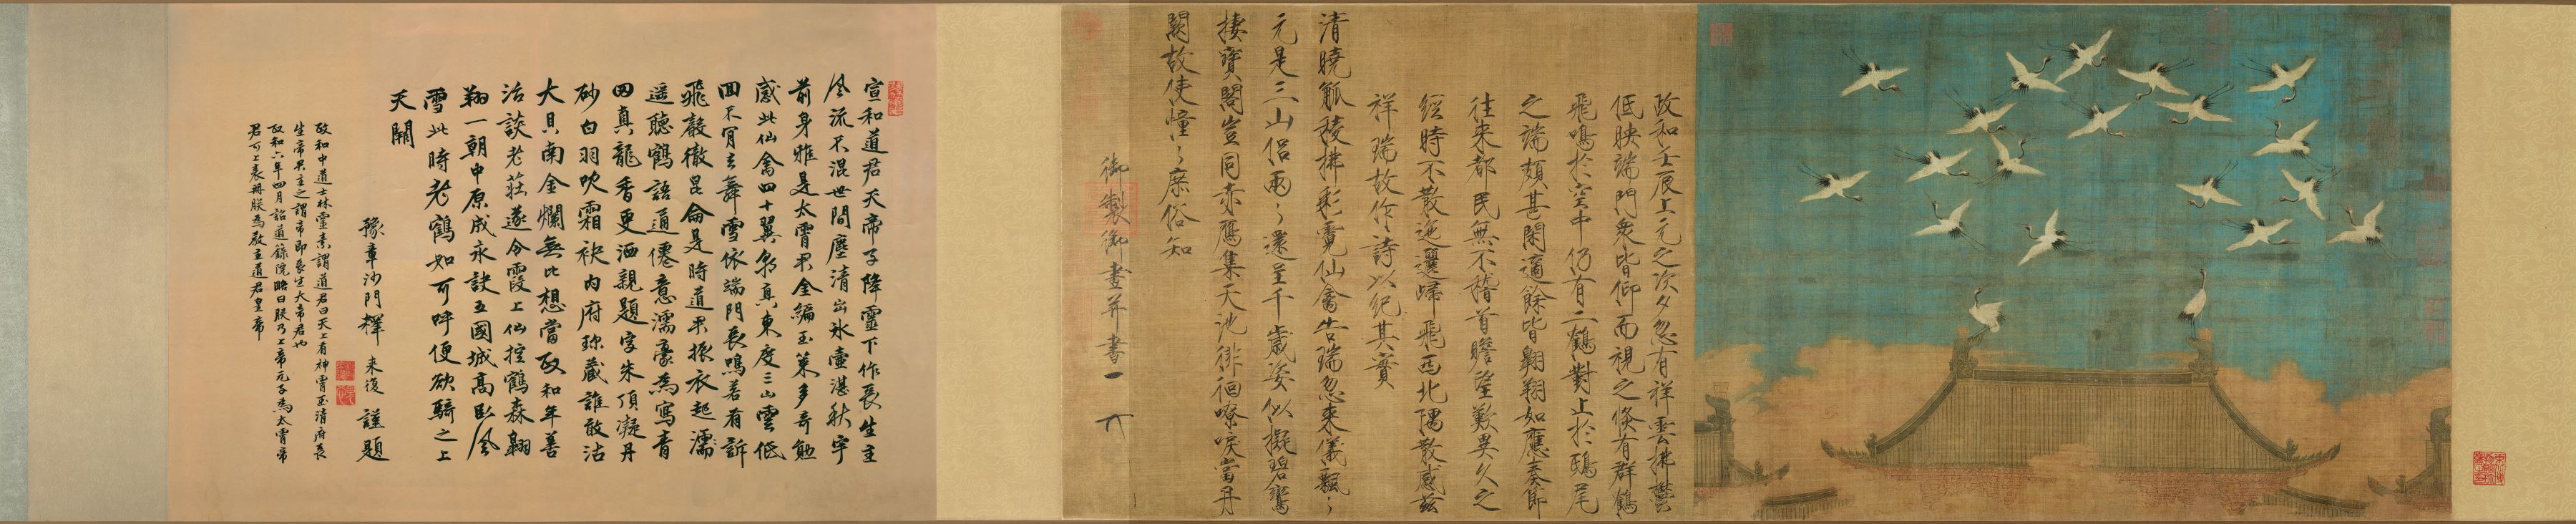 政和壬辰上元之次夕忽有祥雲拂鬱
低映端門衆皆仰而視之倏有群鶴
飛鳴於空中仍有二鶴對止於鴟尾
之端頗甚閑適餘皆翱翔如應奏節
往來都民無不稽首瞻望歎異久之
經時不散迤邐歸飛西北隅散感茲
祥瑞故作詩以紀其實
清曉觚稜拂彩霓仙禽告瑞忽來儀飄〻
元是三山侶兩〻還呈千歲姿似擬碧鸞
棲寶閣豈同赤鴈集天池徘徊嘹唳當丹
闕故使憧〻庶俗知
御製御畫并書
宣和道君天帝子降靈下作長生主
風流不混世間塵清出冰壺湛秋宇
前身雅是太霄君金編玉策多奇勳
感此仙禽四十翼朝真東度三山雲低
回不肯去舞雪依端門長鳴若有訴
飛聲徹昆侖是時道君振衣起
遥聽鶴語通僊意濡豪為寫青
田真龍香更洒親題字朱頂凝丹
砂白羽吹霜袂内府珎藏誰敢沽
大貝南金爛無比想當政和年善
談老莊遂令霞上仙控鶴森翱
翔一朝中原成永訣五國城高卧風
雪此時老鶴如可呼便欲騎之上
天關
豫章沙門釋來復謹題
政和中道士林靈素謂道君曰天上有神霄玉清府長
生帝君主之謂帝即長生大帝君也
政和六年四月詔道籙院略曰朕乃上帝元子為太霄帝
君可上表冊朕為教主道君皇帝